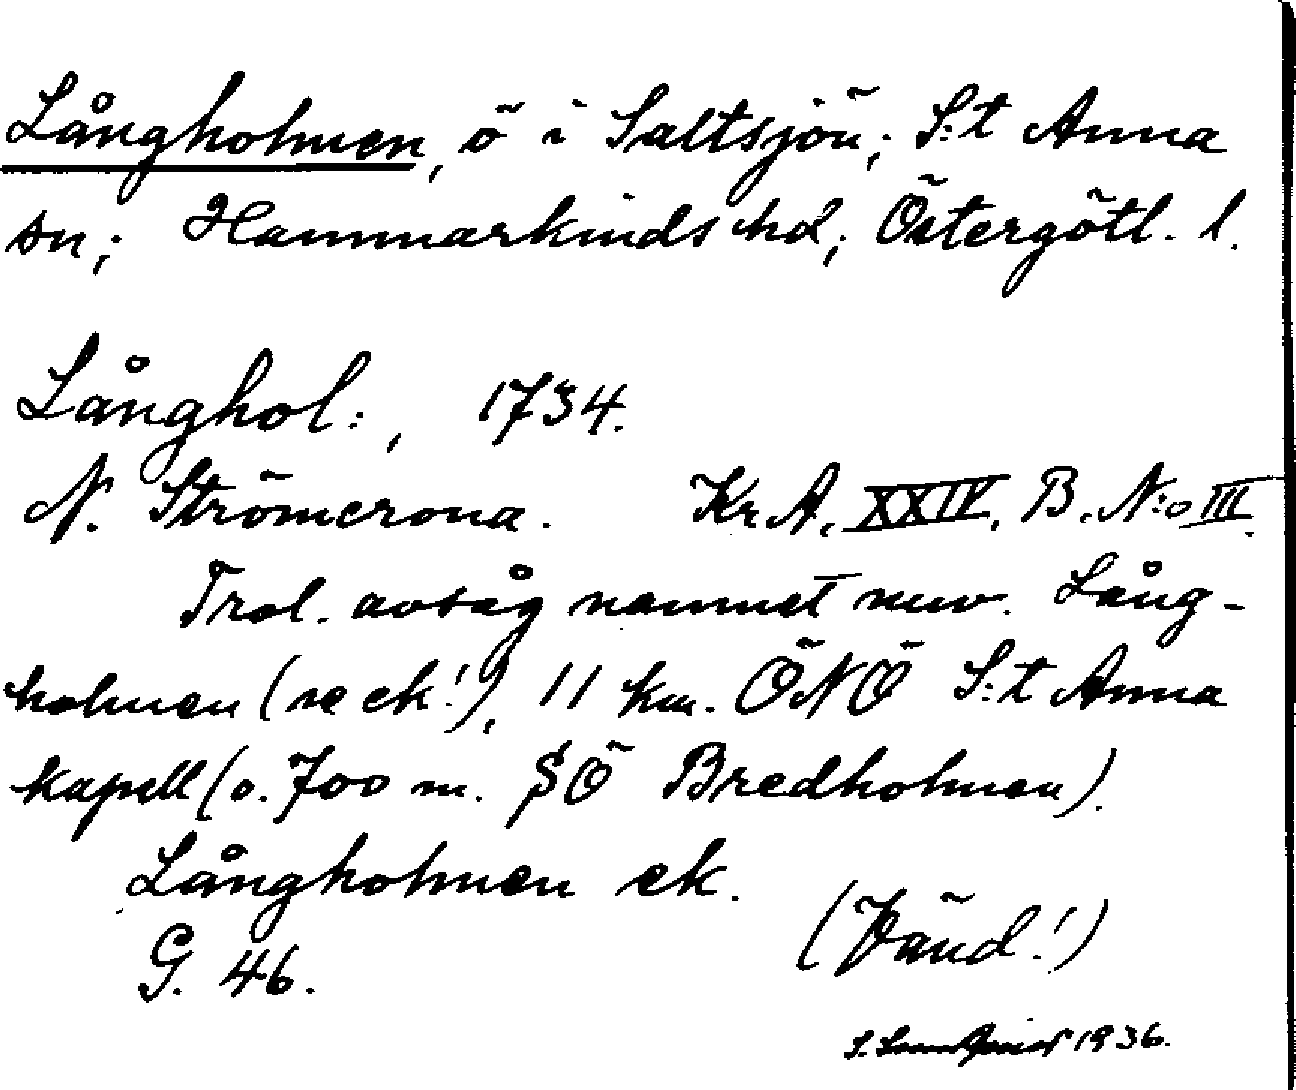 Långholmen, ö i Saltsjön; S:t Anna
sn; Hammarkinds hd; Östergötl. l.
Långhol:, 1734.
N. Strömcrona. Kr.A. XXIV, B. N:o III.
Trol. avsåg namnet nuv. Lång-
holmen (se ek!), 11 km. ÖNÖ S:t Anna
kapell (o. 700 m. SÖ Bredholmen).
Långholmen ek.
G. 46.
(Vänd!)
S. 1936.